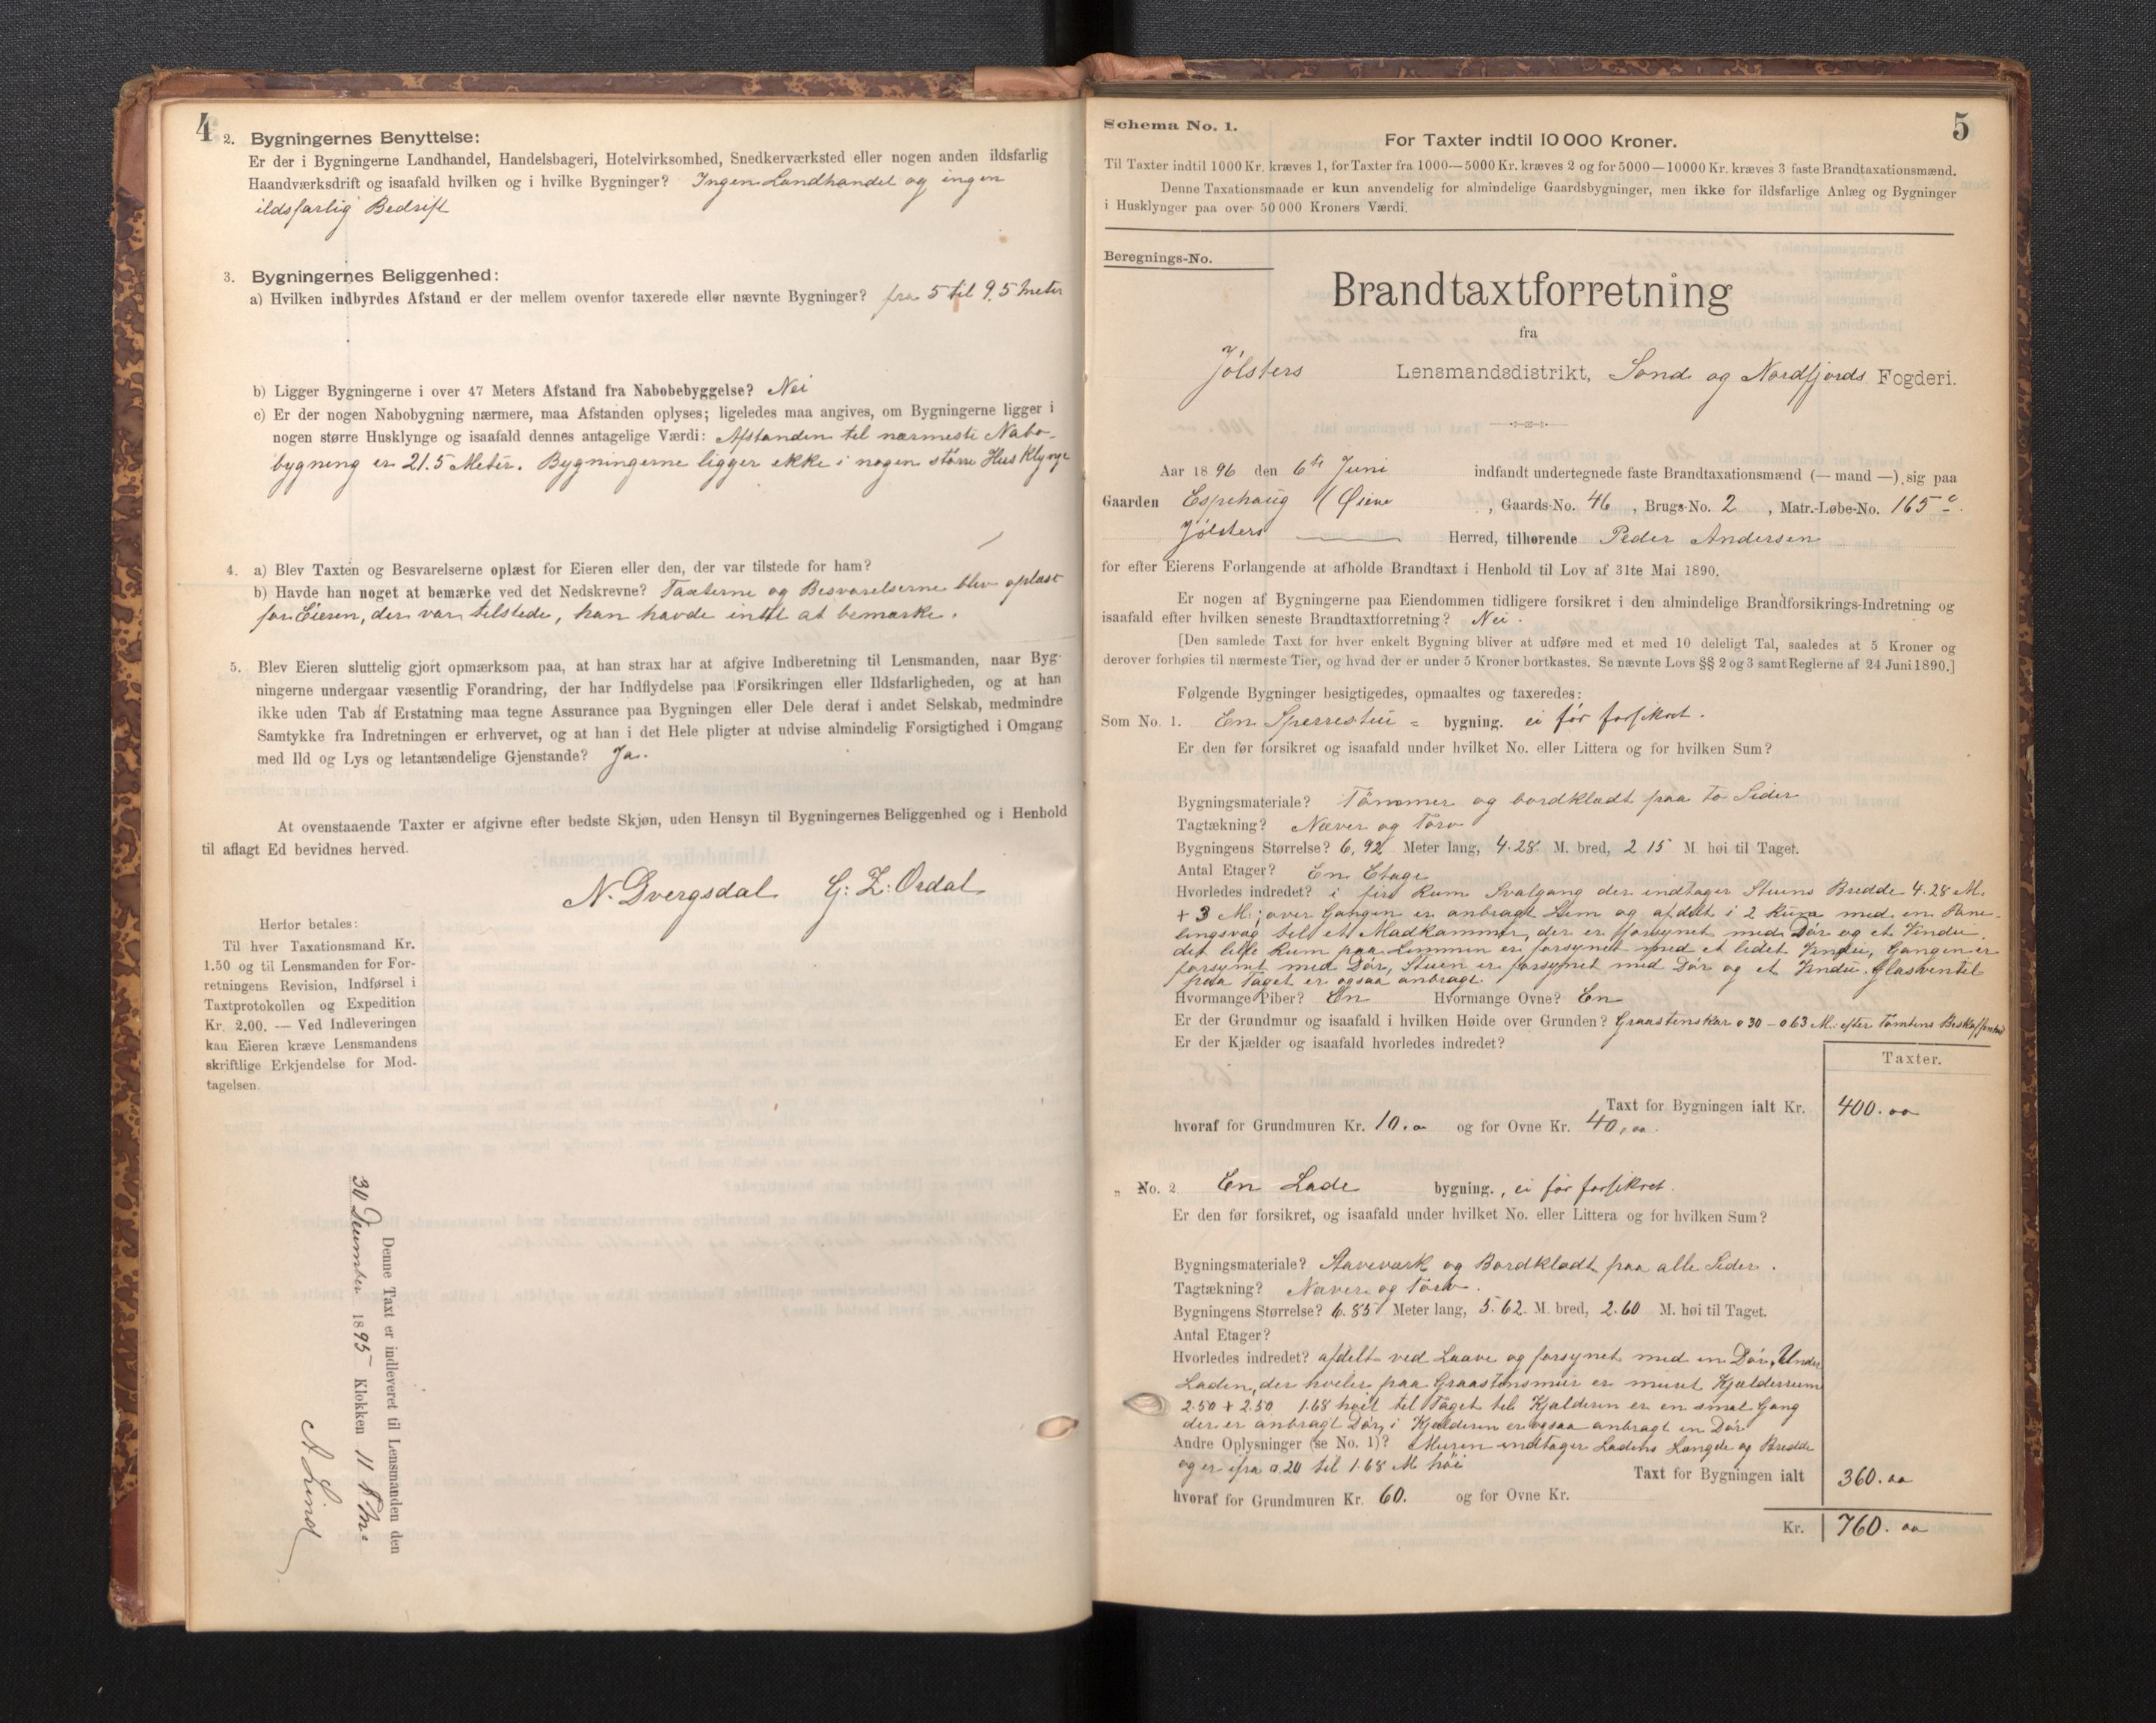 4
2. Bygningernes Benyttelse:
Er der i Bygningerne Landhandel, Handelsbageri, Hotelvirksomhed, Snedkerværksted eller nogen anden ildsfarlig
Haandværksdrift og isaafald hvilken og i hvilke Bygninger? Ingen Landhandel og ingen
ildsfarlig Bedrift
3. Bygningernes Beliggenhed:
a) Hvilken indbyrdes Afstand er der mellem ovenfor taxerede eller nævnte Bygninger? fra 5 til 9.5 Meter
b) Ligger Bygningerne i over 47 Meters Afstand fra Nabobebyggelse? Nei
c) Er der nogen Nabobygning nærmere, maa Afstanden oplyses; ligeledes maa angives, om Bygningerne ligger i
nogen større Husklynge og isaafald dennes antagelige Værdi: Afstanden til nærmeste Nabo-
bygning er 21.5 Meter. Bygningerne ligger ikke i nogen større Husklynge
4. a) Blev Taxten og Besvarelserne oplæst for Eieren eller den, der var tilstede for ham?
b) Havde han noget at bemærke ved det Nedskrevne? Taxterne og Besvarelserne blev oplæst
for Eieren, der var tilstede, han havde intet at bemærke.
5. Blev Eieren sluttelig gjort opmærksom paa, at han strax har at afgive Indberetning til Lensmanden, naar Byg-
ningerne undergaar væsentlig Forandring, der har Indflydelse paa Forsikringen eller Ildsfarligheden, og at han
ikke uden Tab af Erstatning maa tegne Assurance paa Bygningen eller Dele deraf i andet Selskab, medmindre
Samtykke fra Indretningen er erhvervet, og at han i det Hele pligter at udvise almindelig Forsigtighed i Omgang
med Ild og Lys og letantændelige Gjenstande? Ja.
At ovenstaaende Taxter er afgivne efter bedste Skjøn, uden Hensyn til Bygningernes Beliggenhed og i Henhold
til aflagt Ed bevidnes herved.
N. Dvergsdal G: Z: Ordal
Herfor betales:
Til hver Taxationsmand Kr.
1.50 og til Lensmanden for For-
retningens Revision, Indførsel i
Taxtprotokollen og Expedition
Kr. 2.00. — Ved Indleveringen
kan Eieren kræve Lensmandens
skriftlige Erkjendelse for Mod-
tagelsen.
Denne Taxt er indleveret til Lensmanden den
30 December 1895 Klokken 11
A Lind
5
Schema No. 1.
For Taxter indtil 10 000 Kroner.
Til Taxter indtil 1000 Kr. kræves 1, for Taxter fra 1000—5000 Kr. kræves 2 og for 5000—10000 Kr. kræves 3 faste Brandtaxationsmænd.
Denne Taxationsmaade er kun anvendelig for almindelige Gaardsbygninger, men ikke for ildsfarlige Anlæg og Bygninger
i Husklynger paa over 50 000 Kroners Værdi.
Beregnings-No.
Brandtaxtforretning
fra
Jølsters Lensmandsdistrikt, Sønd og Nordfjords Fogderi.
Aar 1896 den 6te Juni indfandt undertegnede faste Brandtaxationsmænd (— mand —) sig paa
Gaarden Espehaug / Øiene, Gaards-No. 46, Brugs-No. 2, Matr.-Løbe-No. 165 c.
Jølsters Herred, tilhørende Peder Andersen
for efter Eierens Forlangende at afholde Brandtaxt i Henhold til Lov af 31te Mai 1890.
Er nogen af Bygningerne paa Eiendommen tidligere forsikret i den almindelige Brandforsikrings-Indretning og
isaafald efter hvilken seneste Brandtaxtforretning? Nei.
[Den samlede Taxt for hver enkelt Bygning bliver at udføre med et med 10 deleligt Tal, saaledes at 5 Kroner og
derover forhøies til nærmeste Tier, og hvad der er under 5 Kroner bortkastes. Se nævnte Lovs §§ 2 og 3 samt Reglerne af 24 Juni 1890.]
Følgende Bygninger besigtigedes, opmaaltes og taxeredes:
Som No. 1. En Sperrestue = bygning. ei før forsikret.
Er den før forsikret og isaafald under hvilket No. eller Littera og for hvilken Sum?
Bygningsmateriale? Tømmer og bordklædt paa to Sider
Tagtækning? Næver og Tørv
Bygningens Størrelse? 6,92 Meter lang, 4.28 M. bred, 2 15 M. høi til Taget.
Antal Etager? En Etage
Hvorledes indredet? i fire Rum Svalgang der indtager Stuens Bredde 4.28 M.
+ 3 M; over Gangen er anbragt Lem og afdelt i 2 Rum med en Pane-
lingsvæg til et Madkammer, der er forsynet med Dør og et Vindu
det lille Rum paa Lemmen er forsynet med et lidet Vindu, Gangen er
forsynet med Dør, Stuen er forsynet med Dør og et Vindu. Glasventil
paa Taget er ogsaa anbragt.
Hvormange Piber? En Hvormange Ovne? En
Er der Grundmur og isaafald i hvilken Høide over Grunden? Graastenskar 0 30 - 0 63 M. efter Tomtens Beskaffenhed
Er der Kjælder og isaafald hvorledes indredet?
Taxter.
Taxt for Bygningen ialt Kr. 400. 00
hvoraf for Grundmuren Kr. 10.00 og for Ovne Kr. 40,00.
„ No. 2 En Lade bygning., ei før forsikret.
Er den før forsikret, og isaafald under hvilket No. eller Littera og for hvilken Sum?
Bygningsmateriale? Staveværk og Bordklædt paa alle Sider.
Tagtækning? Næver og Tørv.
Bygningens Størrelse? 6.85 Meter lang, 5.62. M. bred, 2.60 M. høi til Taget.
Antal Etager?
Hvorledes indredet? afdelt ved Laave og forsynet med en Dør, Under
Laden, der hviler paa Graastensmur er muret Kjælderrum
2.50 + 2.50 1.68 høit til Taget til Kjælderen er en smal Gang
der er anbragt Dør, i Kjælderen er ogsaa anbragt en Dør
Andre Oplysninger (se No. 1)? Muren indtager Ladens Længde og Bredde
og er ifra 0.20 til 1.68 M høi
Taxt for Bygningen ialt 360. 00
hvoraf for Grundmuren Kr. 60. og for Ovne Kr.
Kr. 760. 00